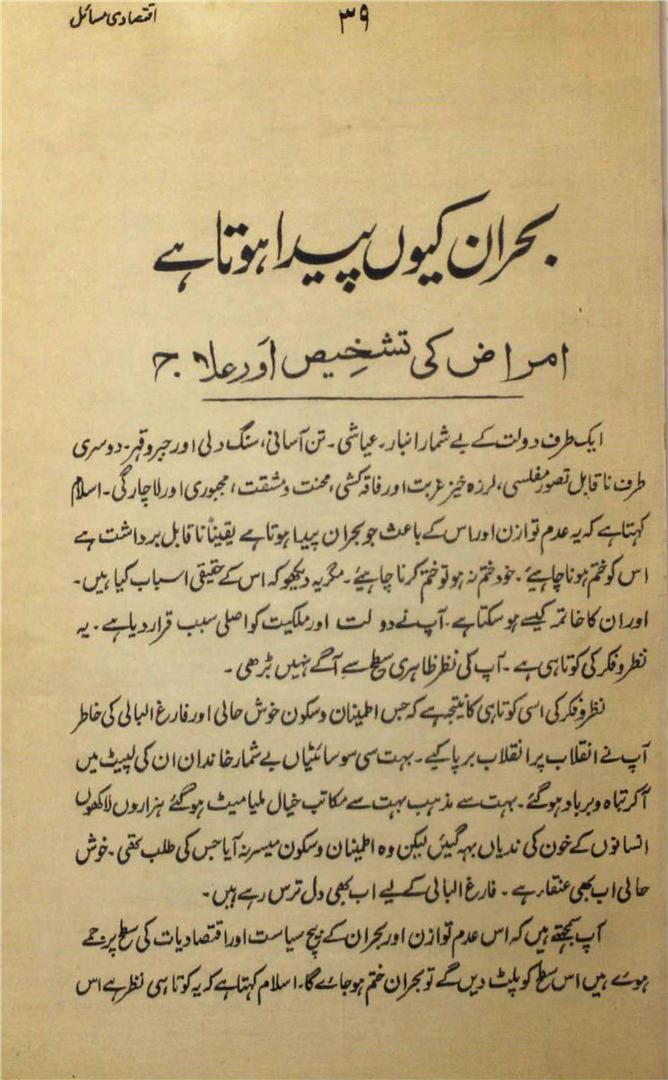 اقتصادی مسائل
۳۹
بحران کیوں پیدا ہوتا ہے
امراض کی تشخیص اور علاج
ایک طرف دولت کے بے شمار انبار۔ عیاشی۔ تن آسانی، سنگ دلی اور جبر و قہر۔ دوسری
طرف ناقابل تصور مفلسی، لرزہ خیز غربت اور فاقہ کشی، محنت و مشقت، مجبوری اور لاچارگی۔ اسلام
کہتا ہے کہ یہ عدم توازن اور اس کے باعث جو بحران پیدا ہوتا ہے یقیناً ناقابل برداشت ہے
اس کو ختم ہونا چاہیئے۔ خود ختم نہ ہو تو ختم کرنا چاہیئے۔ مگر یہ دیکھو کہ اس کے حقیقی اسباب کیا ہیں۔
اور ان کا خاتمہ کیسے ہو سکتا ہے۔ آپ نے دولت اور ملکیت کو اصلی سبب قرار دیا ہے۔ یہ
نظر و فکر کی کوتاہی ہے۔ آپ کی نظر ظاہری سطح سے آگے نہیں بڑھی۔
نظر و فکر کی اسی کوتاہی کا نتیجہ ہے کہ جس اطینان و سکون خوش حالی اور فارغ البالی کی خاطر
آپ نے انقلاب پر انقلاب برپا کیے۔ بہت سی سوسائٹیاں بے شمار خاندان ان کی لپیٹ میں
آکر تباہ و برباد ہو گئے۔ بہت سے مذہب بہت سے مکاتب خیال ملیا میٹ ہو گئے ہزاروں لاکھوں
انسانوں کے خون کی ندیاں بہہ گئیں لیکن وہ اطینان و سکون میسر نہ آیا جس کی طلب تھی۔ خوش
حالی اب بھی عنقاء ہے۔ فارغ البالی کے لیے اب بھی دل ترس رہے ہیں۔
آپ سمجھتے ہیں کہ اس عدم توازن اور بحران کے بیج سیاست اور اقتصادیات کی سطح پر جمے
ہوے ہیں اس سطح کو پلٹ دیں گے تو بحران ختم ہو جاے گا۔ اسلام کہتا ہے کہ یہ کوتاہی نظر ہے اس